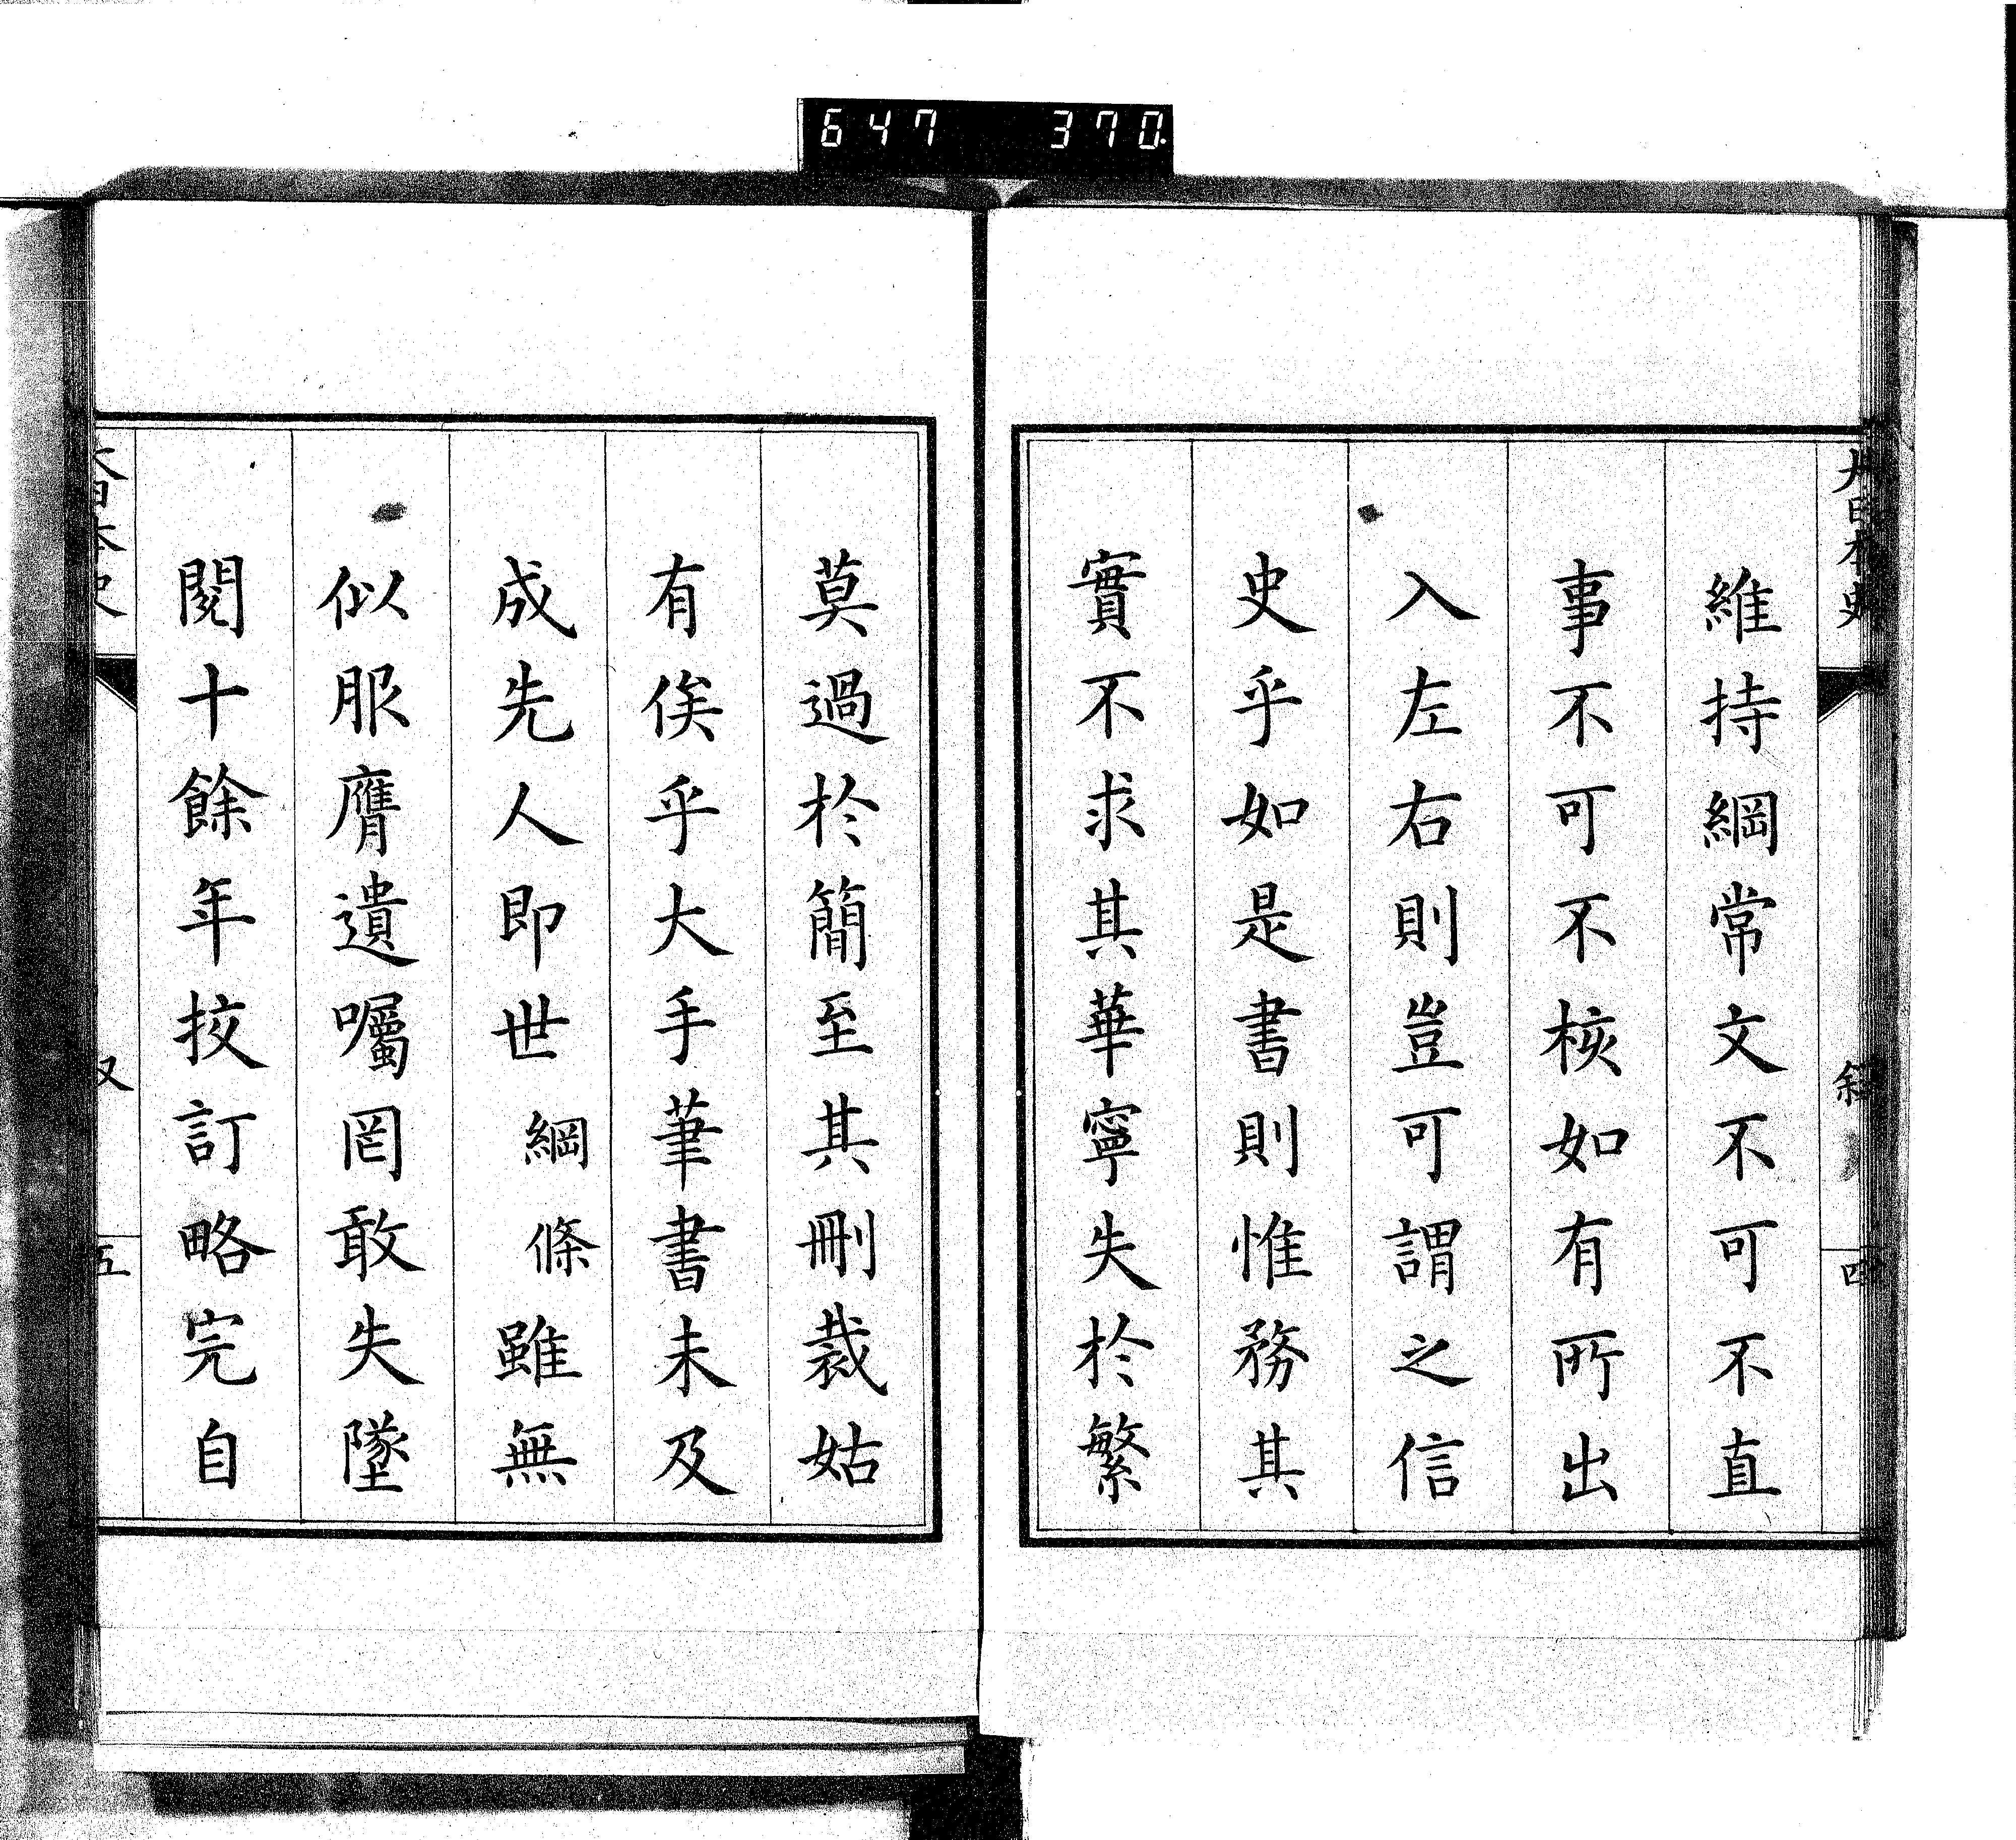 647 370
大日本史 敘 四
維持綱常文不可不直
事不可不核如有所出
入左右則豈可謂之信
史乎如是書則惟務其
實不求其華寧失於繁
莫過於簡至其刪裁姑
有俟乎大手筆書未及
成先人即世綱條雖無
似服膺遺囑罔敢失墜
閱十餘年挍訂略完自
大日本史 五